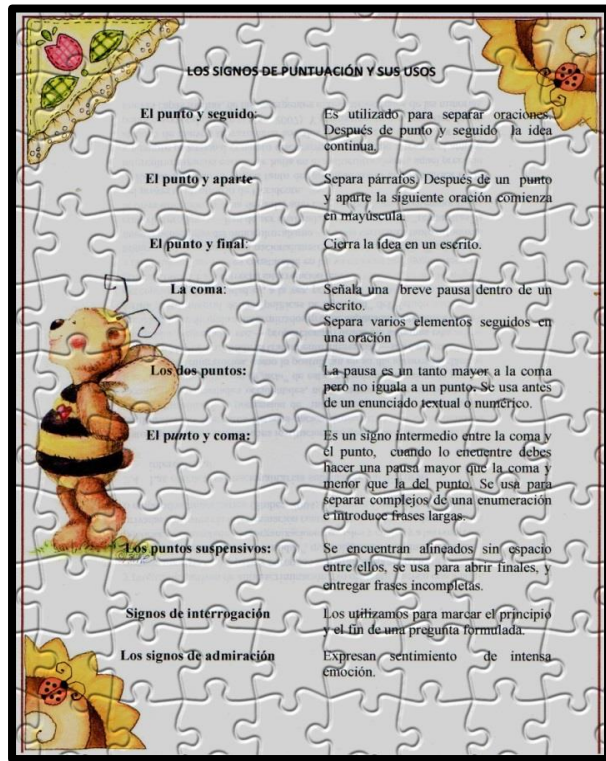 LOS SIGNOS DE PUNTUACIÓN Y SUS USOS
El punto y seguido: Es utilizado para separar oraciones.
Después de punto y seguido la idea
continua.
El punto y aparte Separa párrafos. Después de un punto
y aparte la siguiente oración comienza
en mayúscula.
El punto y final: Cierra la idea en un escrito.
La coma: Señala una breve pausa dentro de un
escrito.
Separa varios elementos seguidos en
una oración
Los dos puntos: La pausa es un tanto mayor a la coma
pero no iguala a un punto. Se usa antes
de un enunciado textual o numérico.
El punto y coma: Es un signo intermedio entre la coma y
el punto, cuando lo encuentre debes
hacer una pausa mayor que la coma y
menor que la del punto. Se usa para
separar complejos de una enumeración
e introduce frases largas.
Los puntos suspensivos: Se encuentran alineados sin espacio
entre ellos, se usa para abrir finales, y
entregar frases incompletas.
Signos de interrogación Los utilizamos para marcar el principio
y el fin de una pregunta formulada.
Los signos de admiración Expresan sentimiento de intensa
emoción.